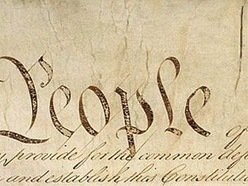 People
of
provide for the common
and establish this Constitu